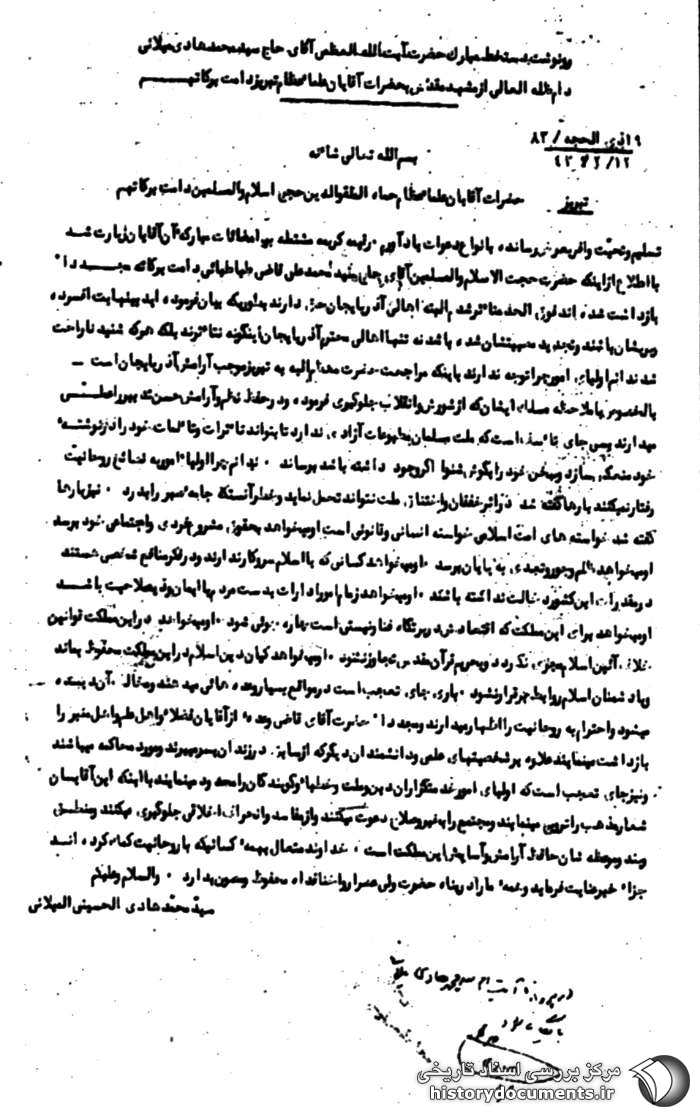 رونوشت دستخط مبارك حضرت آیت الله العظمی آقای حاج سید محمد هادی میلانی
دام ظله العالی از مشهد مقدس بحضرات آقایان علماء عظام تبریز دامت برکاتهم
۱۹ ذی الحجه / ۸۳
بسم الله تعالی شانه
تبریز حضرات آقایان علماء عظام حماة الملة والدین حجج اسلام والمسلمین دامت برکاتهم
تسلیم وتحیت وافر بعرض رسانده بانواع دعوات یادآورم رقیمه کریمه مشتمله بر امضائات مبارکه آن آقایان زیارت شد
با اطلاع از اینکه حضرت حجت الاسلام والمسلمین آقای حاج سید محمد علی قاضی طباطبائی دامت برکاته مجددا
بازداشت شده اند فوق الحد متاثر شدم البته اهالی آذربایجان حق دارند بطوریکه بیان فرموده اید بینهایت افسرده
وپریشان باشند وتجدید مصیبتشان شده باشد نه تنها اهالی محترم آذربایجان اینگونه متاثرند بلکه هر که شنید ناراحت
شد ندانم اولیای امور چرا توجه ندارند باینکه مراجعت حضرت معظم الیه به تبریز موجب آرامش آذربایجان است
بالخصوص با ملاحظه صدای ایشان که از شورش وانقلاب جلوگیری فرموده ودر حفظ نظم وآرامش حسن تدبیر را
میدارند وبس جای تاسف است که ملت مسلمان مطبوعات آزادی ندارد تا بتواند تاثرات وتالمات خود را در نوشته
خود منعکس سازد وسخن خود را بگوش شنوا اگر وجود داشته باشد برساند ندانم چرا اولیاء امور به نصائح روحانیت
رفتار نمیکنند بارها گفته شد در اثر خفقان واختناق ملت نتواند تحمل نماید وخطر آنستکه جامه صبر را بدرد نیز بارها
گفته شد خواسته های امت اسلامی خواسته انسانی وقانونی است او میخواهد بحقوق مشروع فردی واجتماعی خود برسد
او میخواهد ظلم وجور وتعدی به پایان برسد او میخواهد کسانی که با اسلام سر وکار ندارند ودر فکر منافع شخصی هستند
در مقدرات این کشور دخالت نداشته باشند او میخواهد زمام امور ادارات بدست مردم با ایمان وذیصلاحیت باشد
او میخواهد برای این مملکت که اقتصادش در پرتگاه فنا ونیستی است چاره جوئی شود او میخواهد در این مملکت قوانین
خلاف آئین اسلام مجری نگردد وبحریم قرآن مقدس تجاوز نشود او میخواهد کیان دین اسلام در این مملکت محفوظ بماند
وبا دشمنان اسلام روابط برقرار نشود باری جای تعجب است در مواقع بسیار وعده هائی میدهند ومخالف آن دیده
میشود واحترام به روحانیت را اظهار میدارند ومجددا حضرت آقای قاضی وعده از آقایان فضلاء واهل علم واهل منبر را
بازداشت مینمایند علاوه بر شخصیتهای علمی ودانشمندان دیگر که از سابق در زندان بسر میبرند ومورد محاکمه میباشند
ونیز جای تعجب است که اولیای امور خدمتگزاران دین وملت وخطباء وگویندگان را محدود مینمایند با اینکه این آقایان
شعار مذهب را ترویج مینمایند ومجتمع را بخیر وصلاح دعوت میکنند واز مفاسد وانحراف اخلاقی جلوگیری میکنند ومنطق
وپند وموعظه شان حافظ آرامش وآسایش این مملکت است خداوند متعال بهمه کسانیکه با روحانیت کمک کرده اند
جزاء خیر عنایت فرماید وهمه ما را در پناه حضرت ولی عصر ارواحنا فداه محفوظ ومصون بدارد والسلام علیکم
سید محمد هادی الحسینی المیلانی
مرکز بررسی اسناد تاریخی
historydocuments.ir